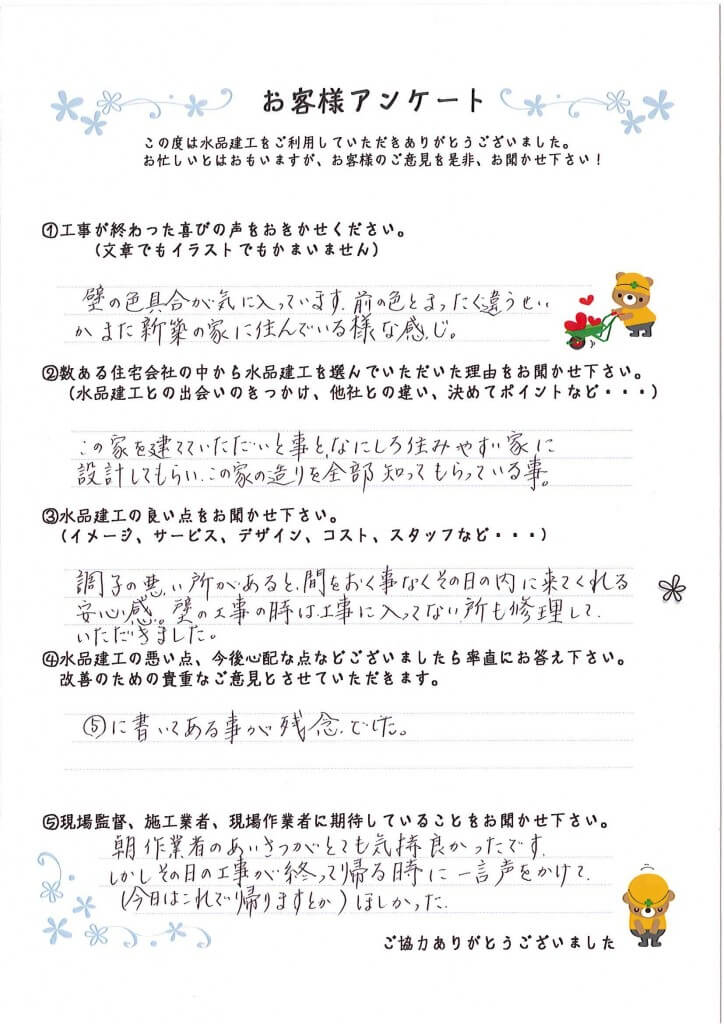 お客様アンケート
この度は水品建工をご利用していただきありがとうございました。
お忙しいとはおもいますが、お客様のご意見を是非、お聞かせ下さい！
①工事が終わった喜びの声をおきかせください。
（文章でもイラストでもかまいません）
壁の色具合が気に入っています。前の色とまったく違うせい
か、また新築の家に住んでいる様な感じ。
②数ある住宅会社の中から水品建工を選んでいただいた理由をお聞かせ下さい。
（水品建工との出会いのきっかけ、他社との違い、決めてポイントなど・・・）
この家を建てていただいた事と、なにしろ住みやすい家に
設計してもらい、この家の造りを全部知ってもらっている事。
③水品建工の良い点をお聞かせ下さい。
（イメージ、サービス、デザイン、コスト、スタッフなど・・・）
調子の悪い所があると、間をおく事なくその日の内に来てくれる
安心感。壁の工事の時は、工事に入ってない所も修理して
いただきました。
④水品建工の悪い点、今後心配な点などございましたら率直にお答え下さい。
改善のための貴重なご意見とさせていただきます。
⑤に書いてある事が残念でした。
⑤現場監督、施工業者、現場作業者に期待していることをお聞かせ下さい。
朝作業者のあいさつがとても気持良かったです。
しかしその日の工事が終って帰る時に一言声をかけて、
（今日はこれで帰りますとか）ほしかった。
ご協力ありがとうございました